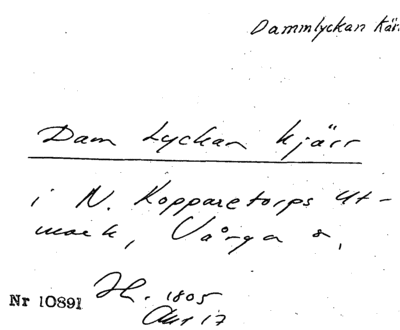 Dammlyckan Kär
Dam Lyckan kjärr
i N. Kopparetorps Ut-
mark, Vårga s,
Nr 10891 Hl. 1805
Akt 17